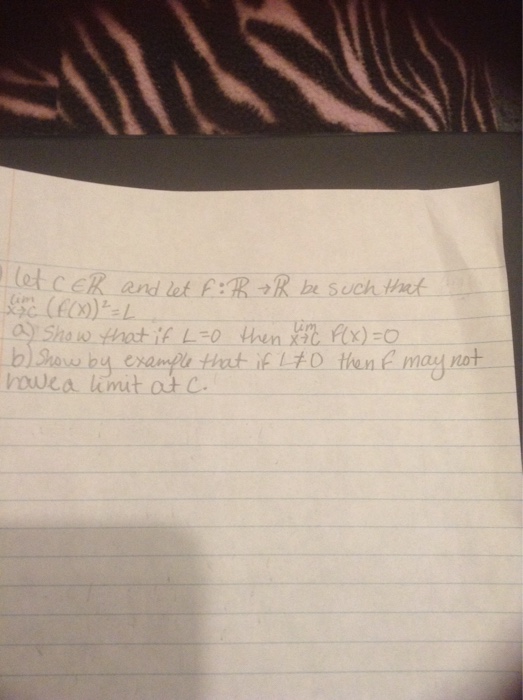 let c ∈ ℝ and let f: ℝ → ℝ be such that
lim x→c (f(x))² = L
a) Show that if L=0 then lim x→c f(x)=0
b) Show by example that if L≠0 then f may not
have a limit at c.